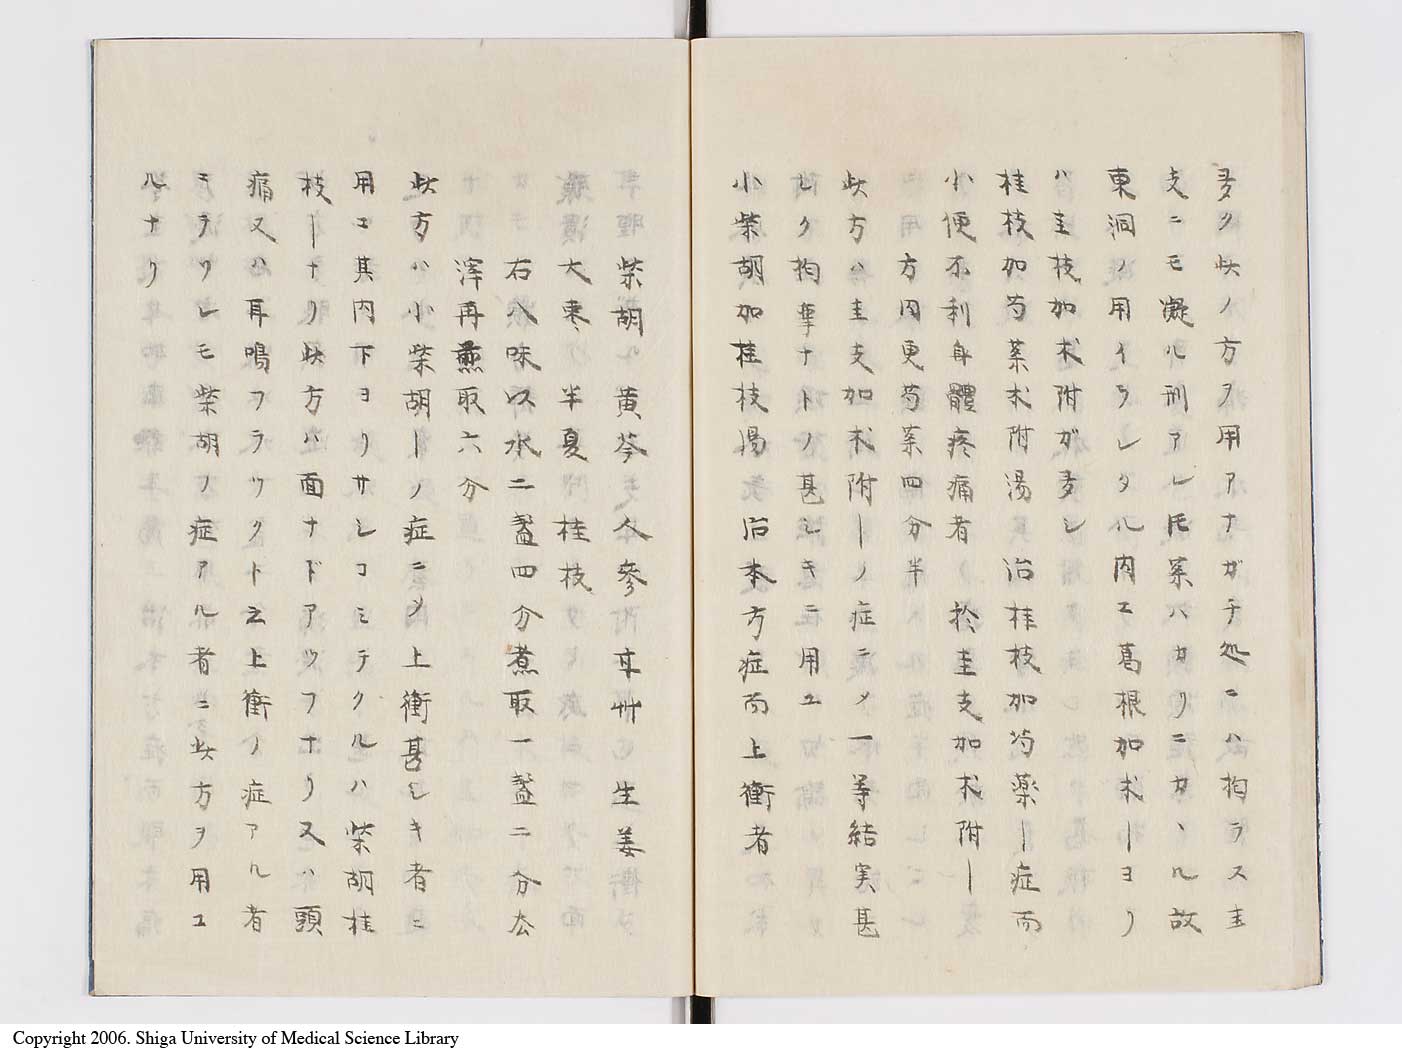 多ク此ノ方ヲ用アナガチ処ニハ拘ラス圭
支ニモ凝ルヿアレ𪜈薬ハカリニカヽル故
東洞ノ用イラレタル内エ葛根加朮ーヨリ
ハ圭枝加朮附ガ多シ
桂枝加芍薬朮附湯治桂枝加芍薬ー症而
小便不利身體疼痛者於圭支加朮附ー
方内更芍薬四分半
此方ハ圭支加朮附ーノ症ニメ一等結実甚
シク拘攣ナトノ甚シキニ用ユ
小柴胡加桂枝湯治本方症而上衝者
柴胡 黄芩人参甘艸生姜
大棗半夏桂枝
右八味以水二盞四分煮取一盞二分去
滓再煎取六分
此方ハ小柴胡ーノ症ニメ上衝甚シキ者ニ
用エ其内下ヨリサシコミテクルハ柴胡桂
枝ーナリ此方ハ面ナドアツフナリ又ハ頭
痛又ハ耳鳴フラツクト云上衝ノ症アル者
ニテクレモ柴胡ノ症アル者ニ此方ヲ用ユ
ルナリ
Copyright 2006. Shiga University of Medical Science Library